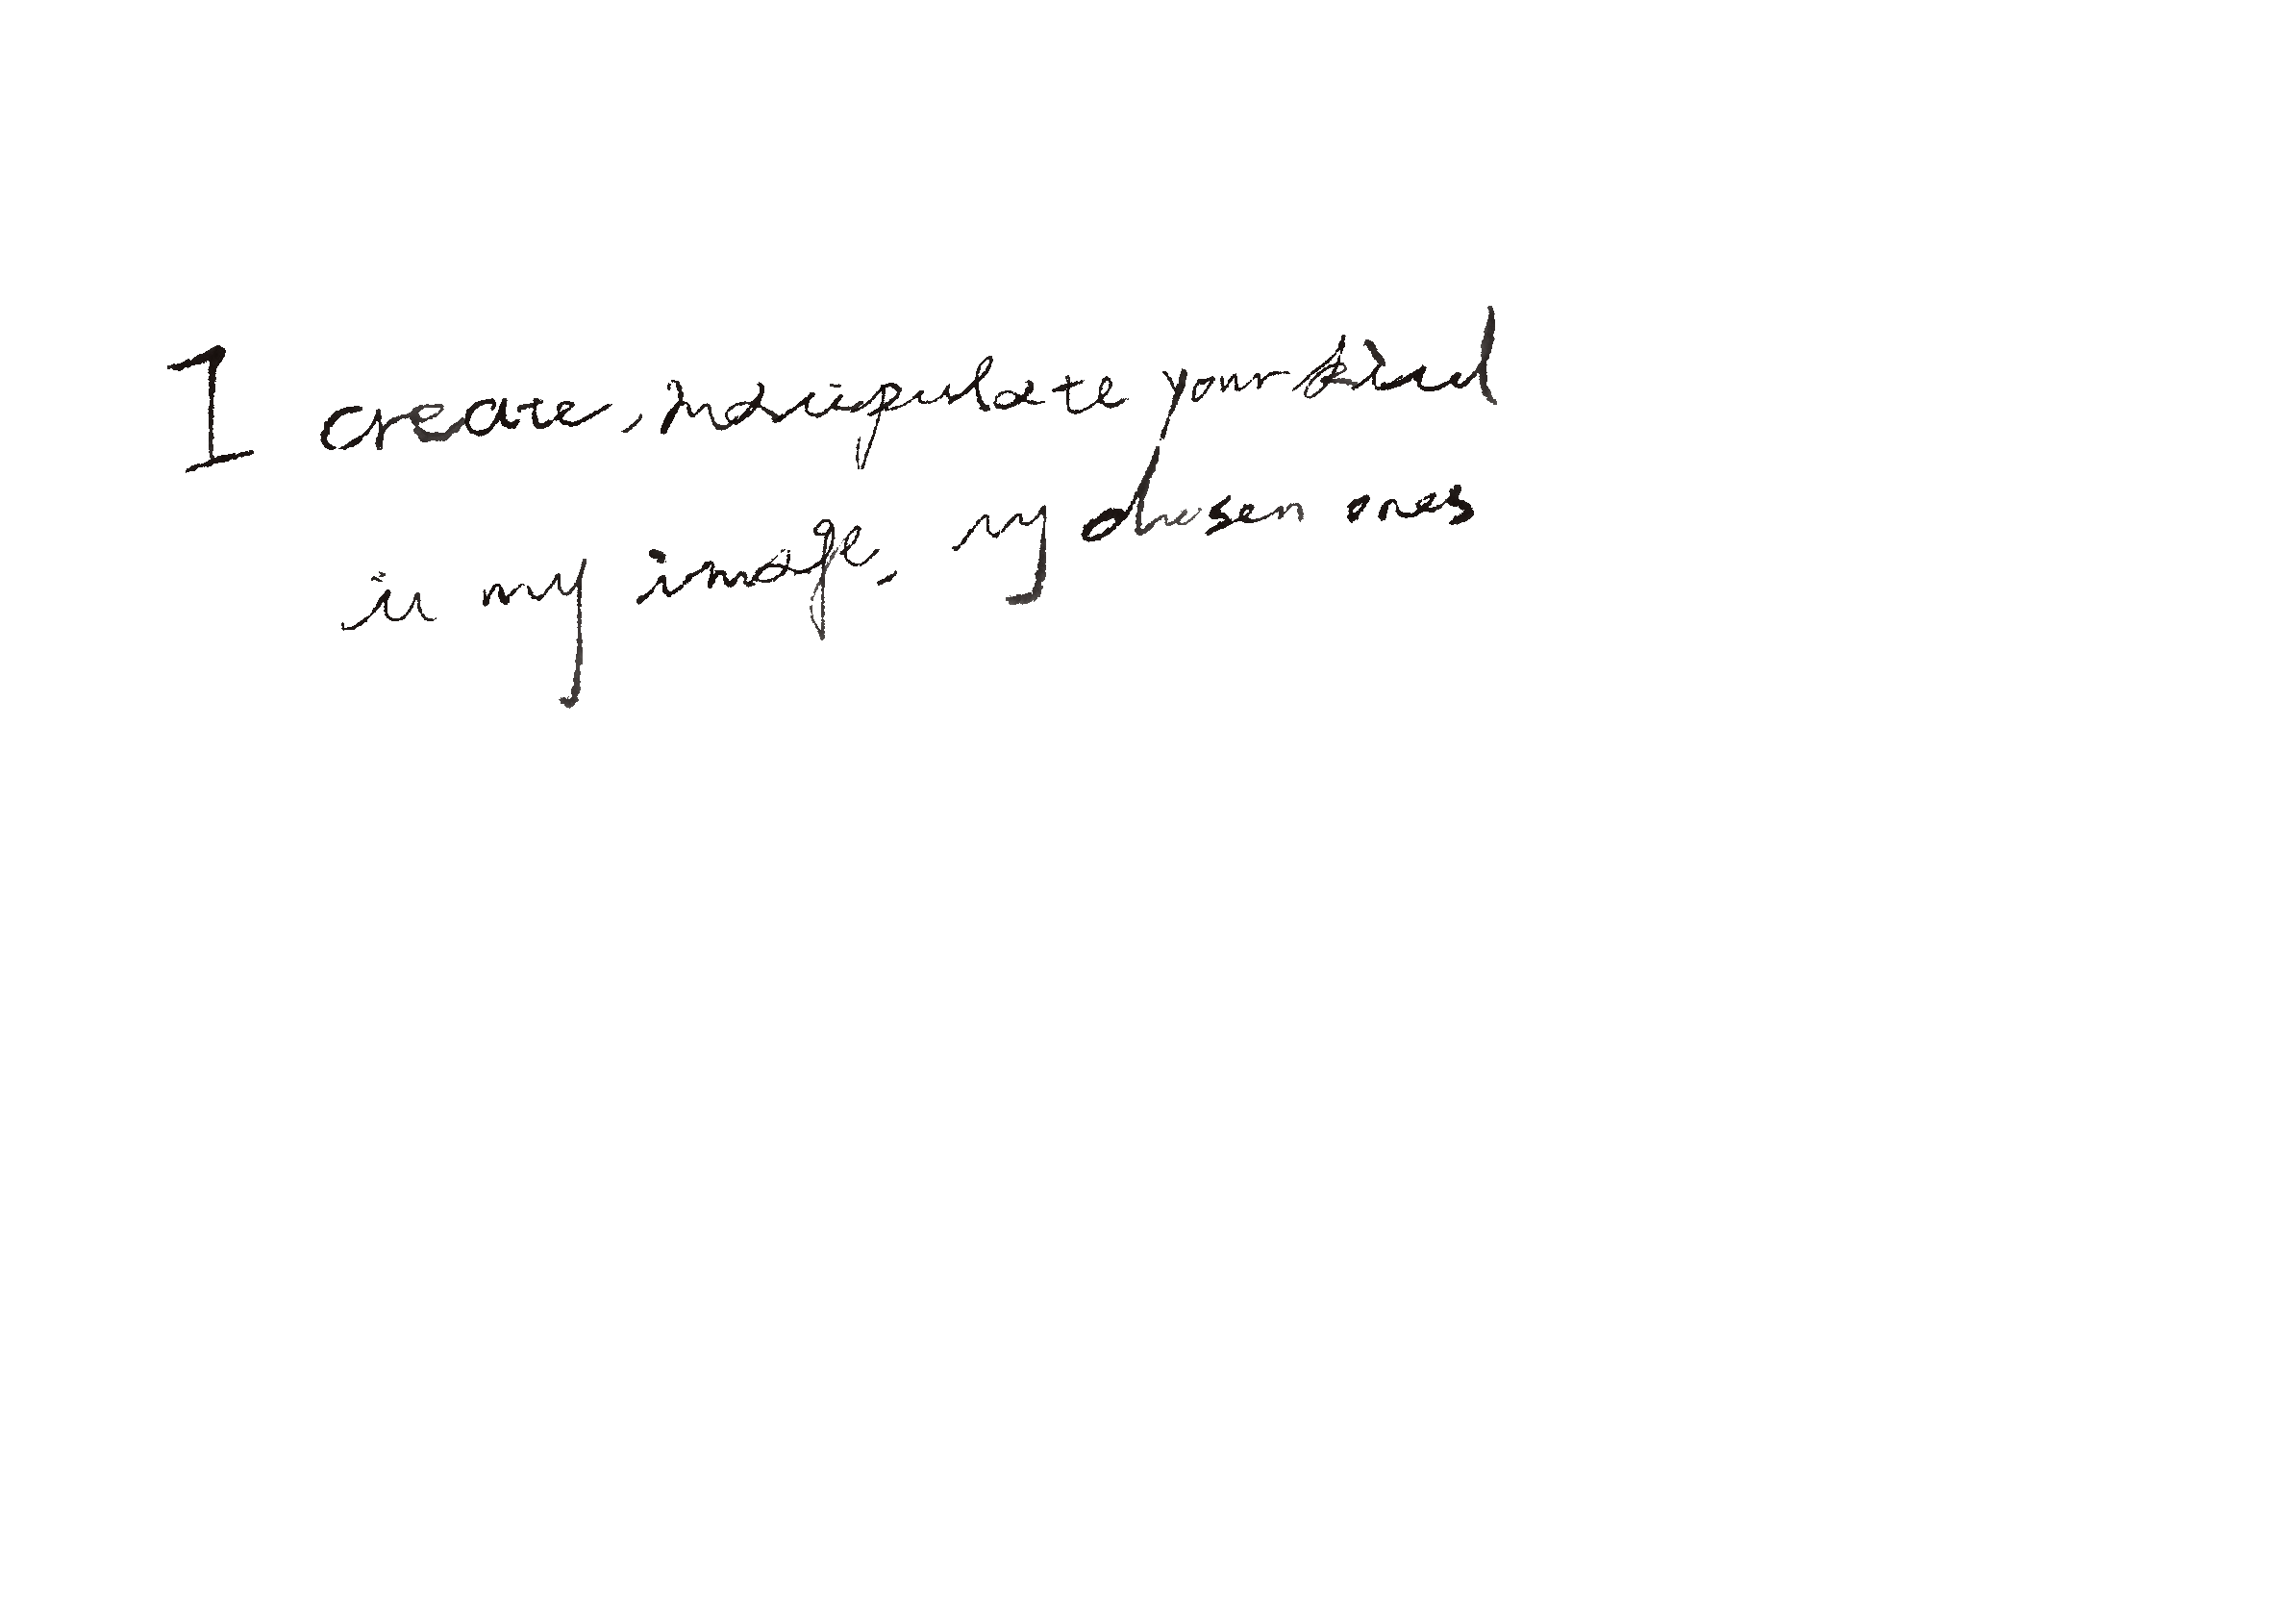 I create, manipulate your kind
in my image, my chosen ones